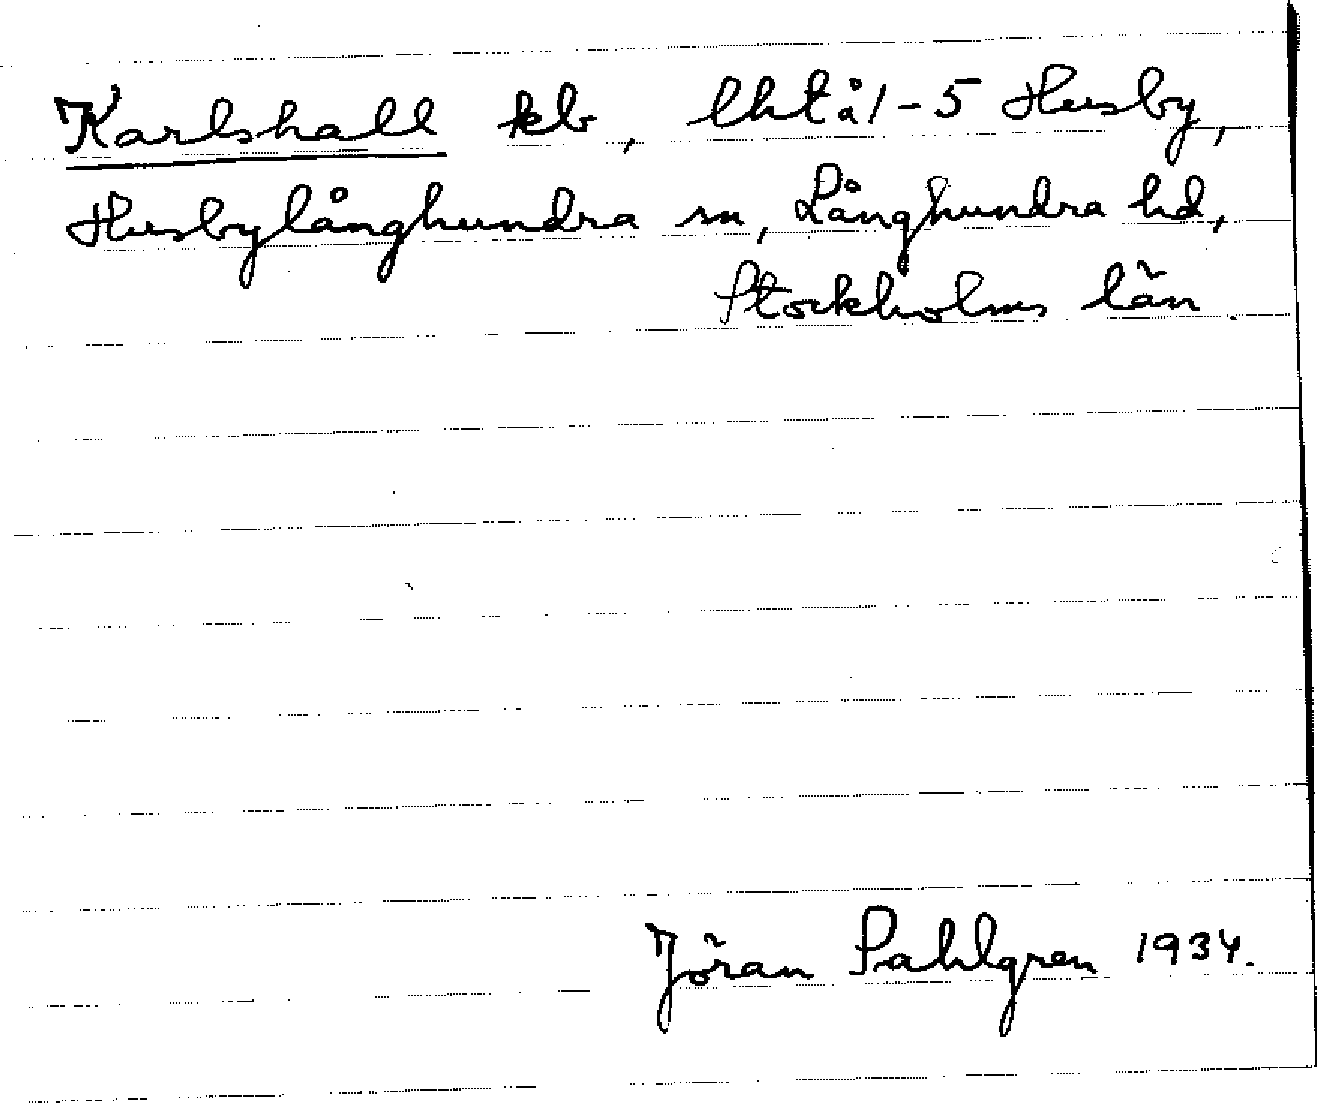 Karlshall kb, lht å 1-5 Husby,
Husbylånghundra sn, Långhundra hd,
Stockholms län.
Jöran Sahlgren 1934.